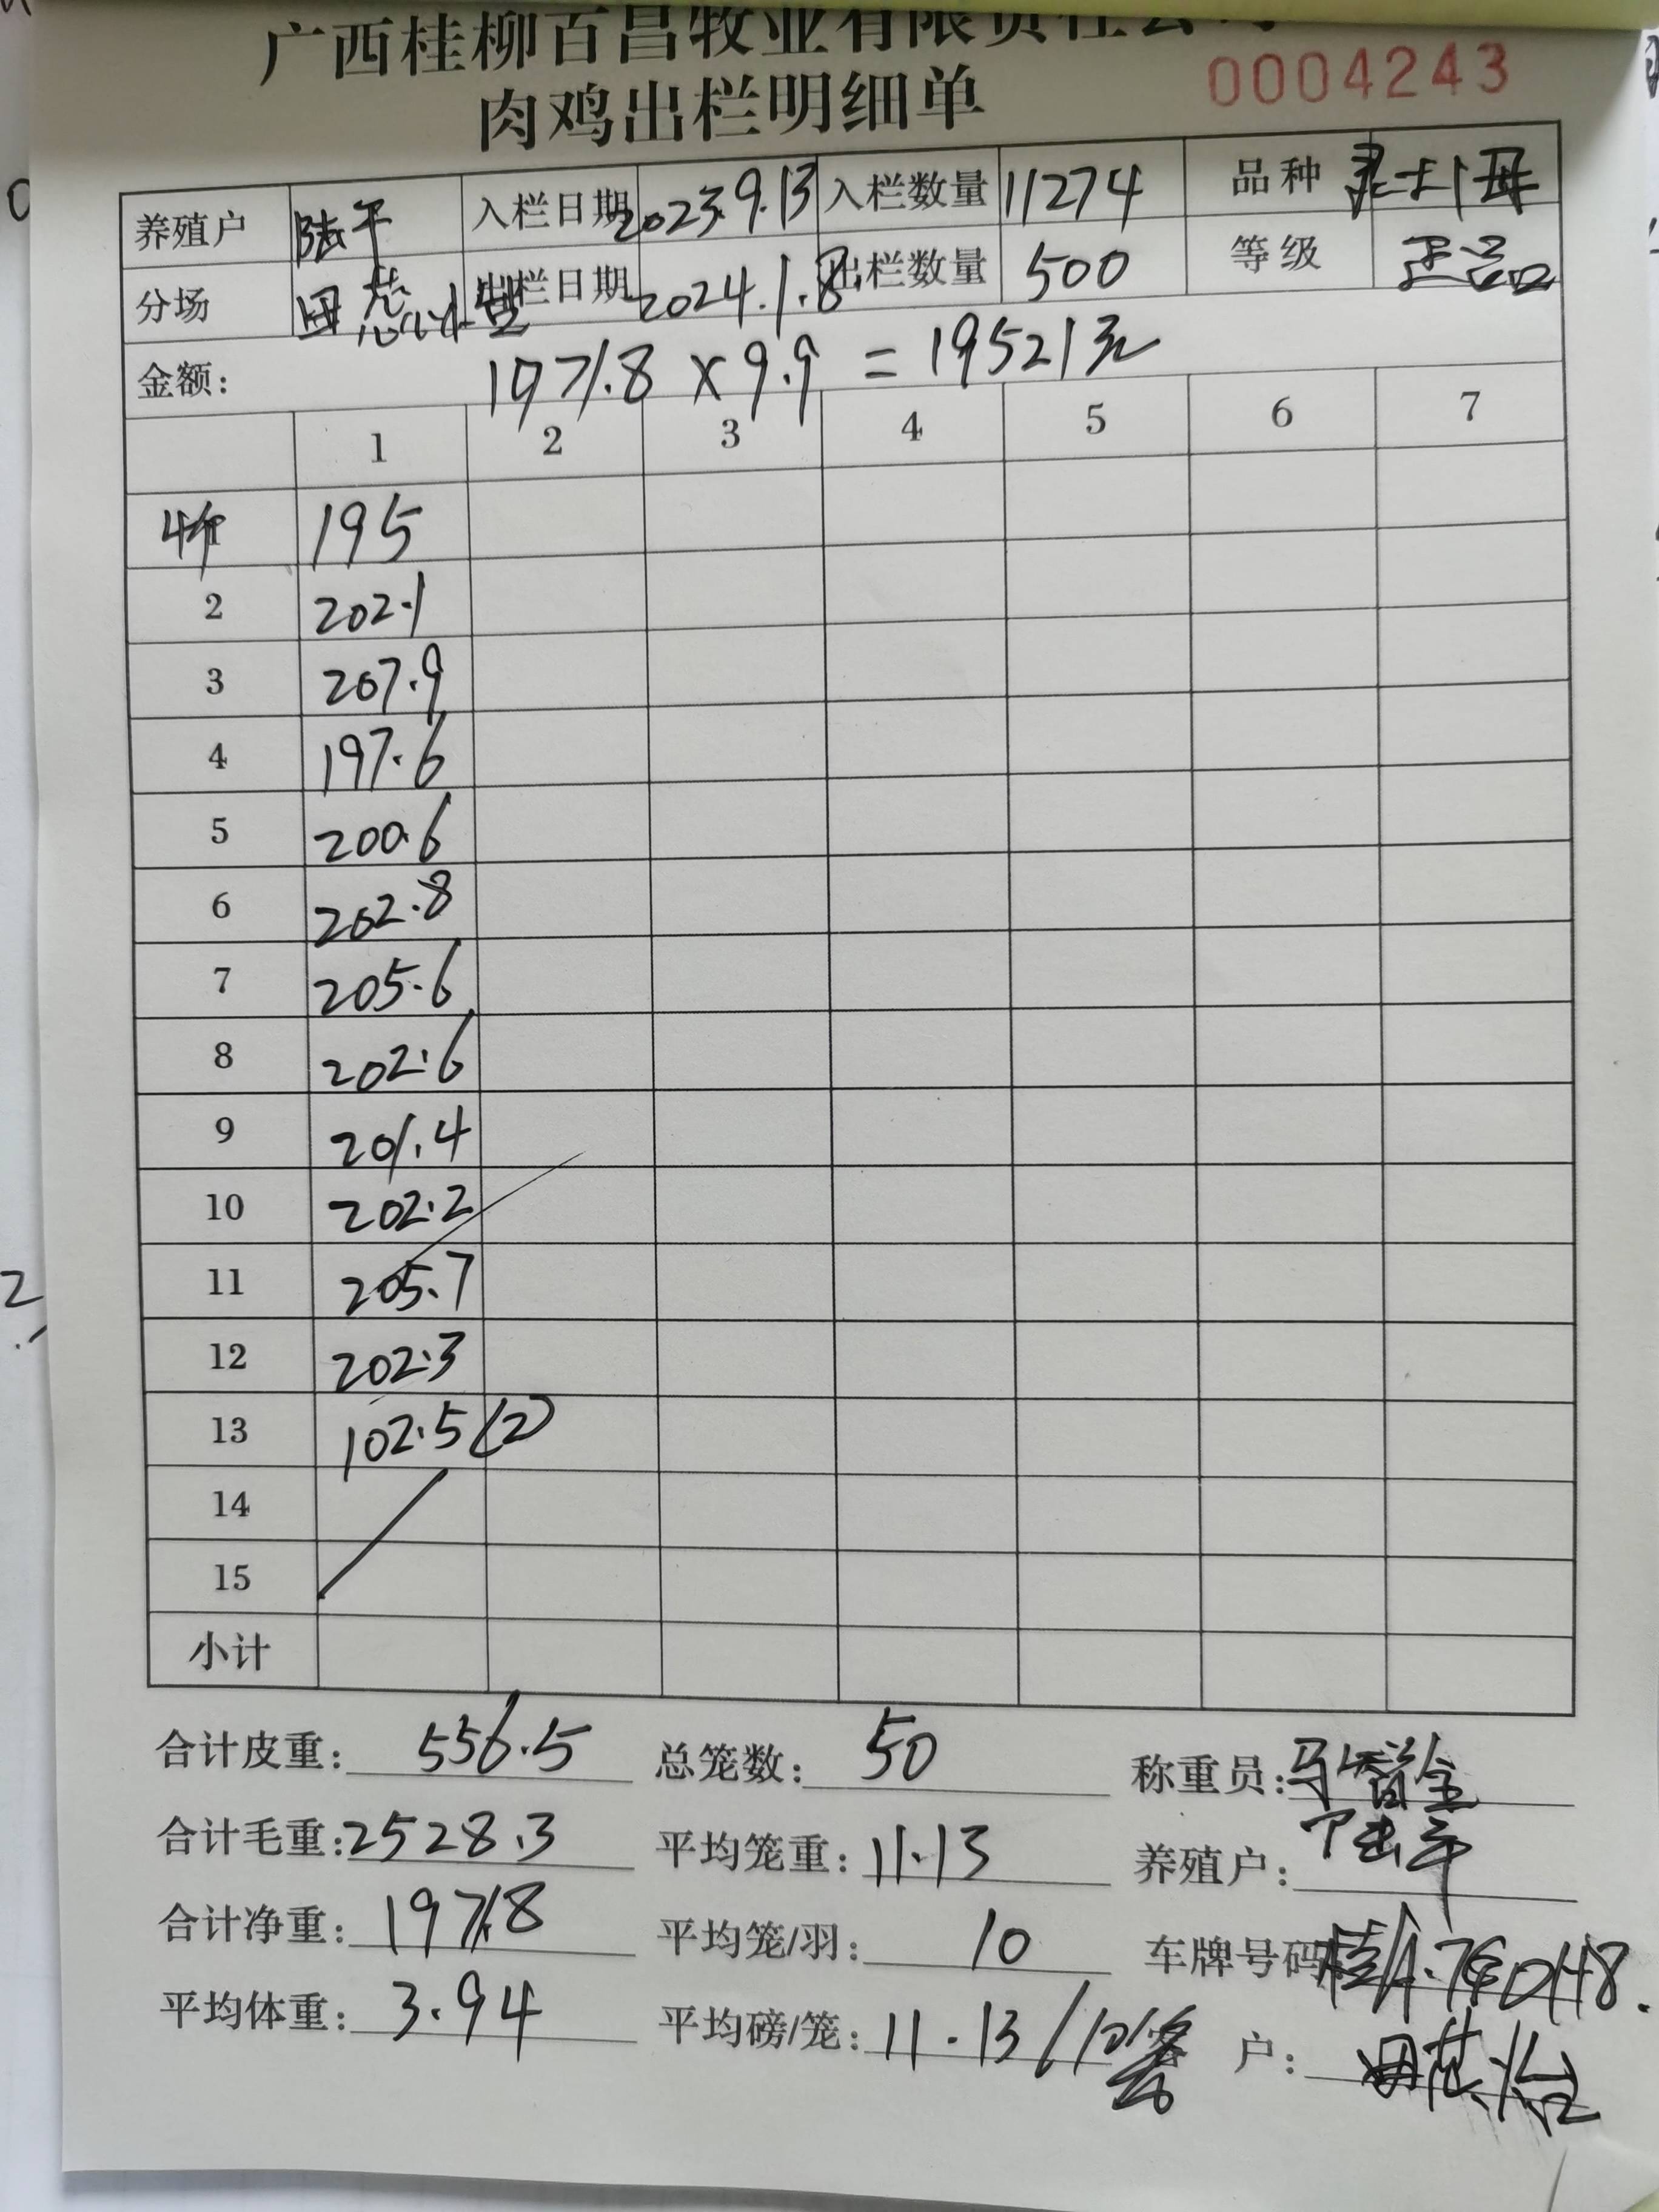 广西桂柳百昌牧业有限责任公司
肉鸡出栏明细单
0004243
养殖户 陆干 入栏日期 2023.9.13 入栏数量 11274 品种 母
分场 出栏日期 2024.1.8 出栏数量 500 等级 正品
金额: 1971.8 × 9.9 = 19521元
1 2 3 4 5 6 7
195
2 202.1
3 207.9
4 197.6
5 200.6
6 202.8
7 205.6
8 202.6
9 201.4
10 202.2
11 205.7
12 202.3
13 102.5(2)
14
15
小计
合计皮重: 556.5 总笼数: 50 称重员:
合计毛重: 2528.3 平均笼重: 11.13 养殖户:
合计净重: 1971.8 平均笼/羽: 10 车牌号码
平均体重: 3.94 平均磅/笼: 11.13/10 客 户: